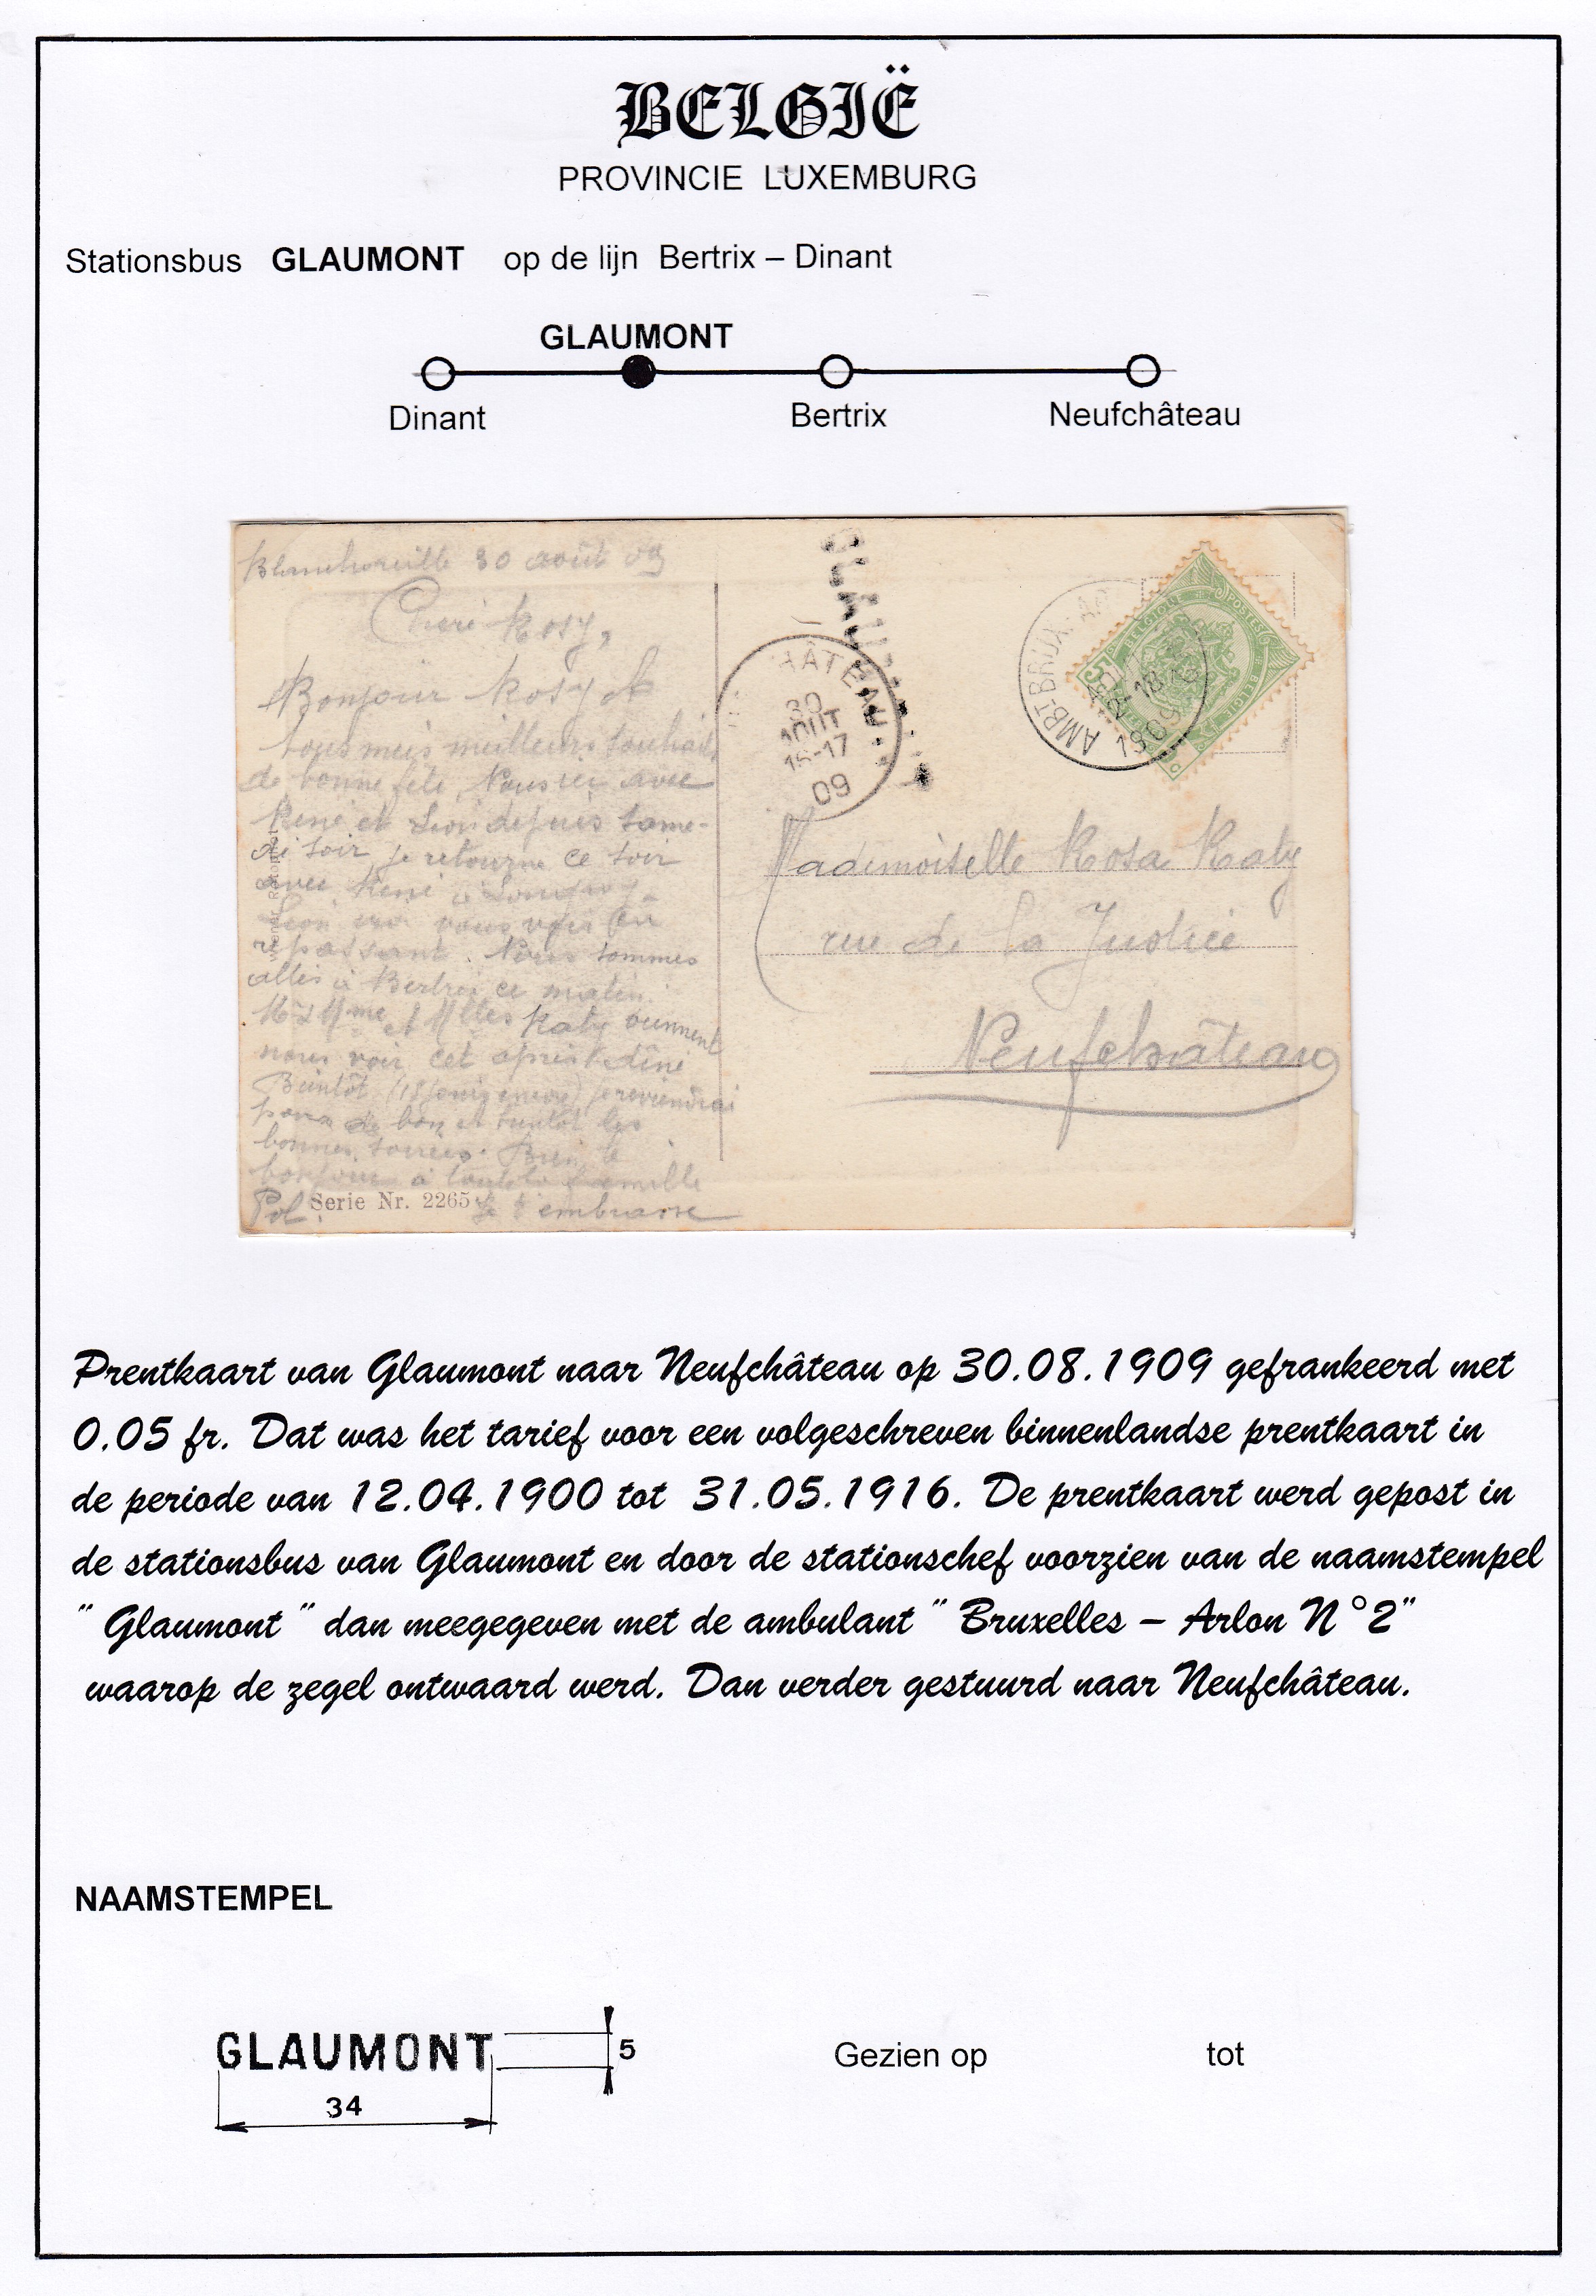 BELGIË
PROVINCIE LUXEMBURG
Stationsbus GLAUMONT op de lijn Bertrix – Dinant
GLAUMONT
Dinant Bertrix Neufchâteau
30 août 09
Rosy,
Bonjour Rosy &
tous mes meilleurs souhaits
de bonne fête. Nous ici avec
René et Léon depuis same-
di soir je retourne ce soir
avec René à
Léon ira vous voir en
repassant. Nous sommes
allés à Bertrix ce matin.
Mr & Mme et Mlles Katy viennent
nous voir cet après dîné
Bientôt (18 jours encore) je reviendrai
pour de bon et bientôt les
bonnes soirées. Bien le
bonjour à toute la famille
Pol. Je t'embrasse
Serie Nr. 2265
GLAU
HÂTEAU
30
AOUT
16-17
09
AMBT-BRUX-
18
1909
POSTES
BELGIQUE
BELGIË
5
Mademoiselle Rosa Katy
rue de la Justice
Neufchâteau
Prentkaart van Glaumont naar Neufchâteau op 30.08.1909 gefrankeerd met
0.05 fr. Dat was het tarief voor een volgeschreven binnenlandse prentkaart in
de periode van 12.04.1900 tot 31.05.1916. De prentkaart werd gepost in
de stationsbus van Glaumont en door de stationschef voorzien van de naamstempel
" Glaumont " dan meegegeven met de ambulant " Bruxelles – Arlon N°2"
waarop de zegel ontwaard werd. Dan verder gestuurd naar Neufchâteau.
NAAMSTEMPEL
GLAUMONT 5
34
Gezien op tot